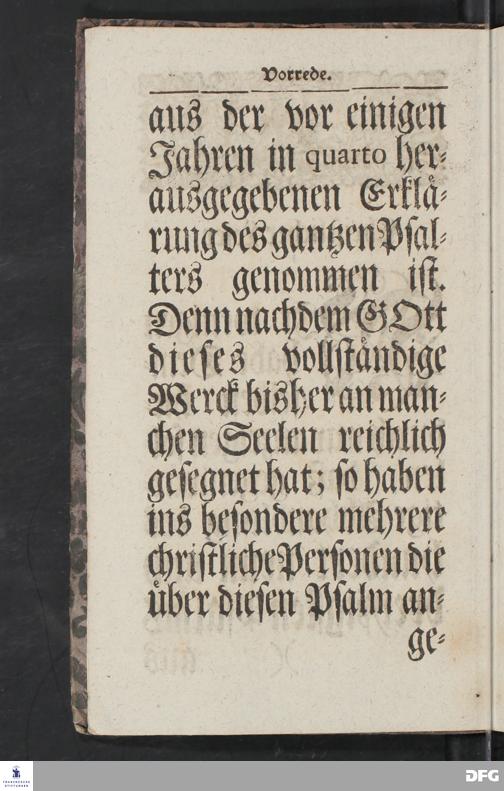 Vorrede.
aus der vor einigen
Jahren in quarto her-
ausgegebenen Erklä-
rung des gantzen Psal-
ters genommen ist.
Denn nachdem GOtt
dieses vollständige
Werck bisher an man-
chen Seelen reichlich
gesegnet hat; so haben
ins besondere mehrere
christliche Personen die
über diesen Psalm an-
ge-
FRANCKESCHE
STIFTUNGEN
DFG